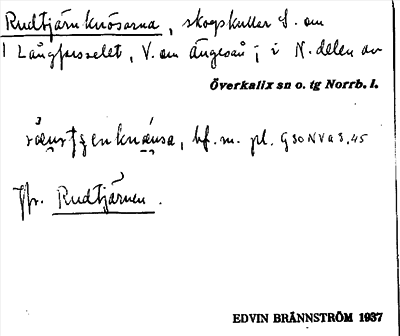 Rudtjärnknösarna, skogskullar S. om
Långforsselet, V. om Ängesån; i N. delen av
Överkalix sn o. tg Norrb. l.
bf. m. pl. GSONVa3,45
Jfr. Rudtjärnen.
EDVIN BRÄNNSTRÖM 1937